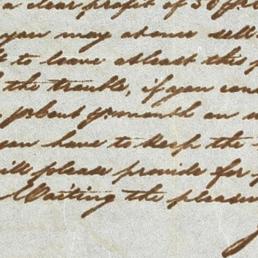 a clear profit of 50
you may at once sell
to leave at least this
the trouble, if you can
about month an
can have to keep the
will please provide for
Waiting the pleasure